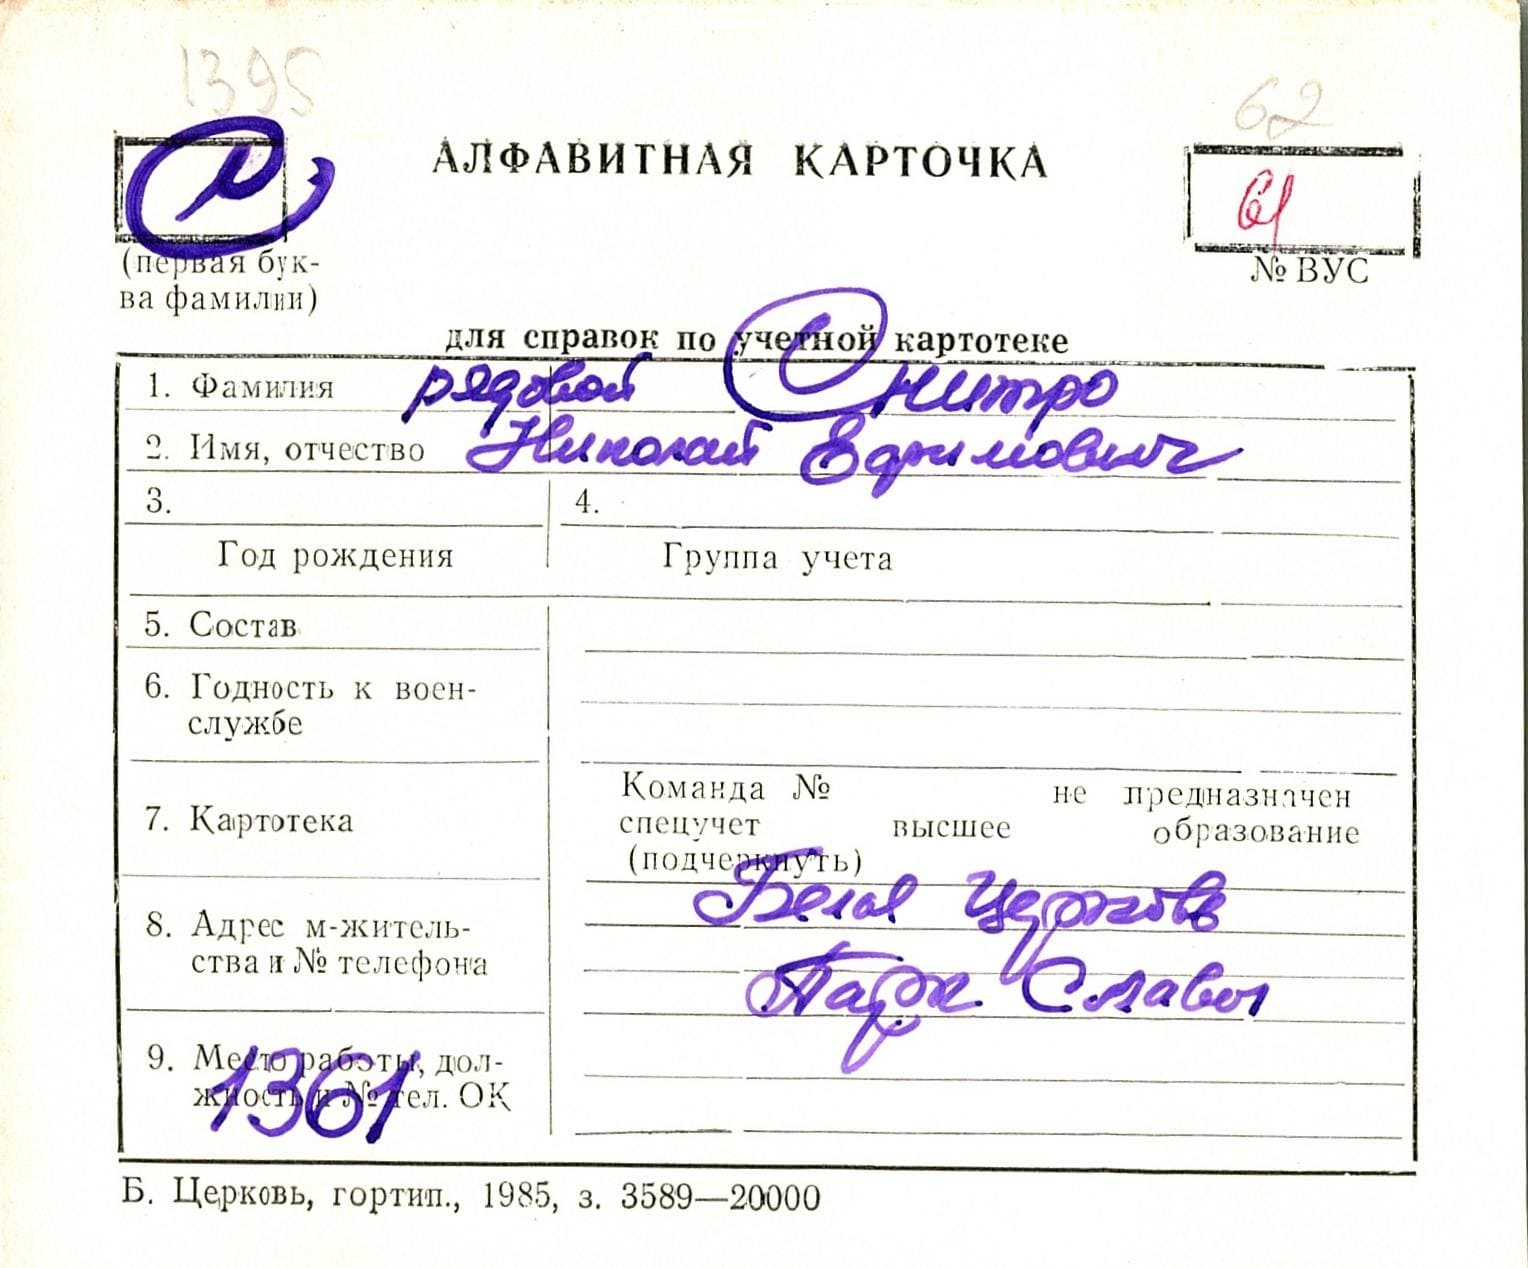 1395
62
АЛФАВИТНАЯ КАРТОЧКА
61
(первая бук-
ва фамилии)
№ ВУС
для справок по учетной картотеке
1. Фамилия рядовой Снитро
2. Имя, отчество Николай Ефимович
3. 4.
Год рождения Группа учета
5. Состав
6. Годность к воен-
службе
Команда № не предназначен
7. Картотека
спецучет высшее образование
(подчеркнуть)
Белая Церковь
8. Адрес м-житель-
ства и № телефона
Парк Славы
9. Место работы, дол-
жность и № тел. ОК
1361
Б. Церковь, гортип., 1985, з. 3589—20000